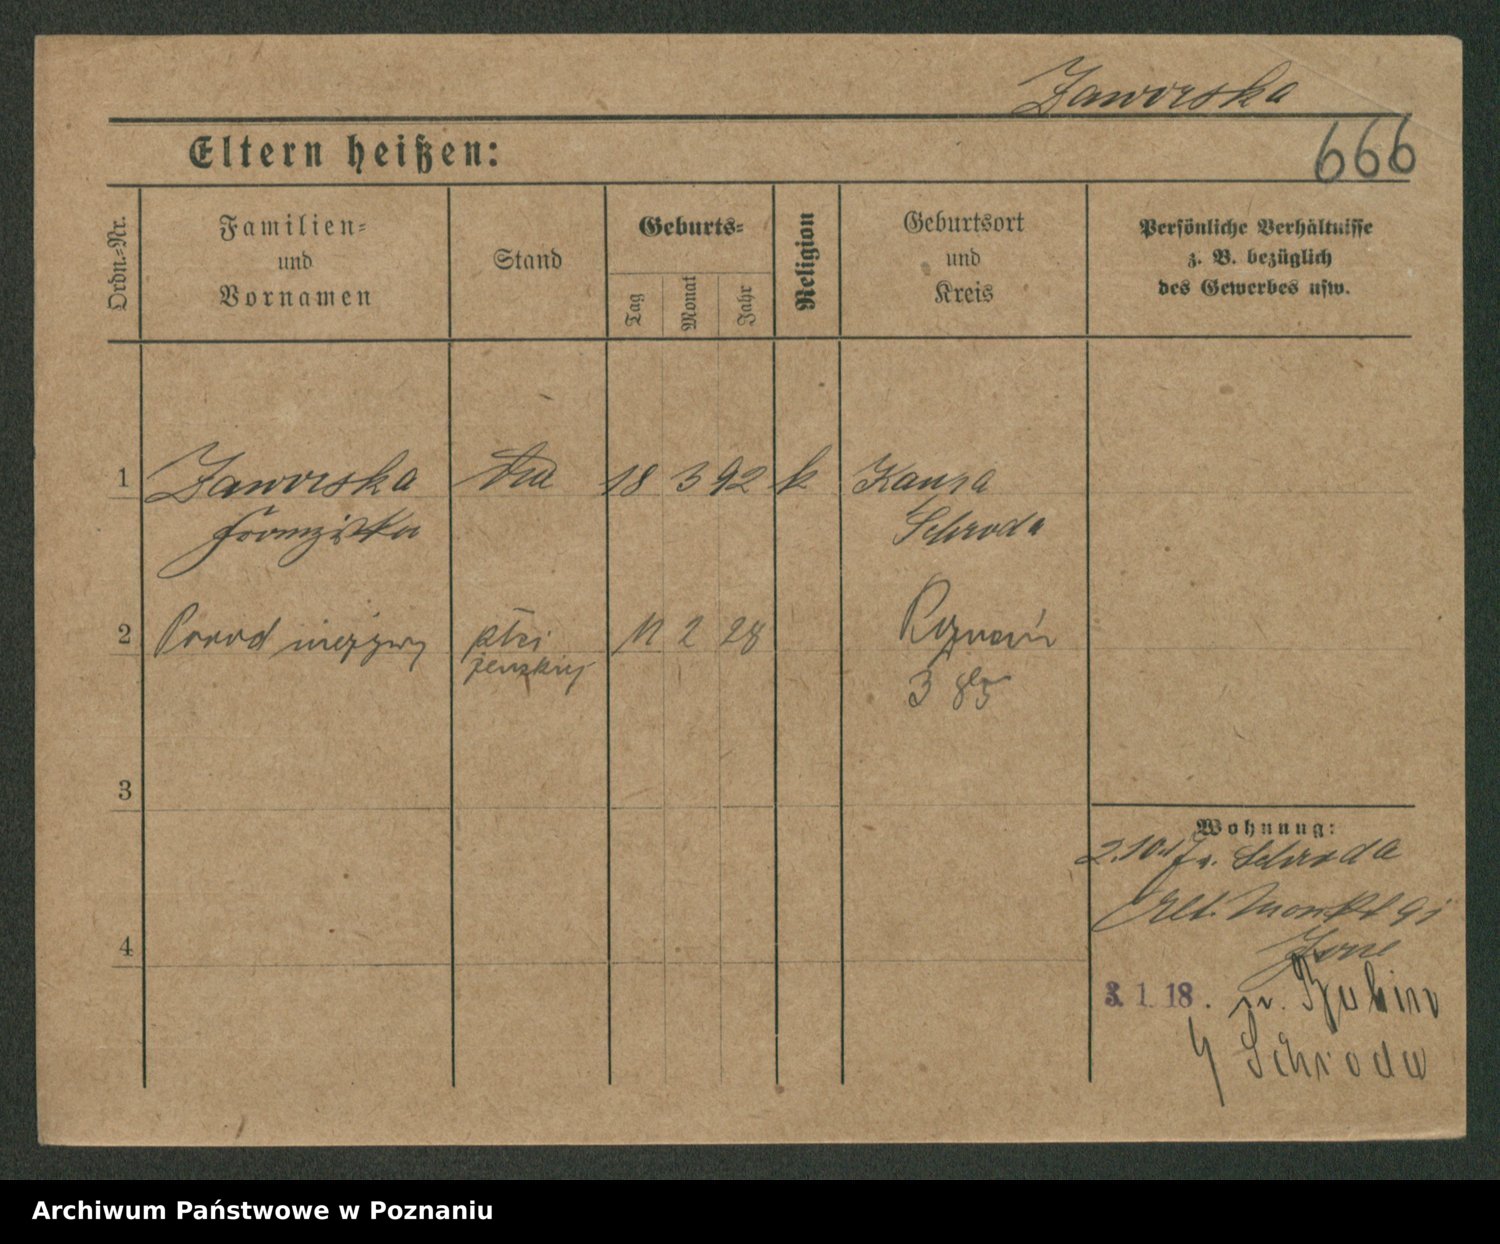 Jaworska
666
Eltern heißen:
Ordn.-Nr.
Familien-
und
Vornamen
Stand
Geburts-
Tag
Monat
Jahr
Religion
Geburtsort
und
Kreis
Persönliche Verhältnisse
z. B. bezüglich
des Gewerbes usw.
1 Jaworska 18 3 92 k
Franziska Schroda
2 Poród nieżywy płci 2 28 Poznań
żeńskiej
3
Wohnung:
2.10.17 v. Schroda
Alt. Markt 91
4
3. 1. 18. n.
Schroda
Archiwum Państwowe w Poznaniu